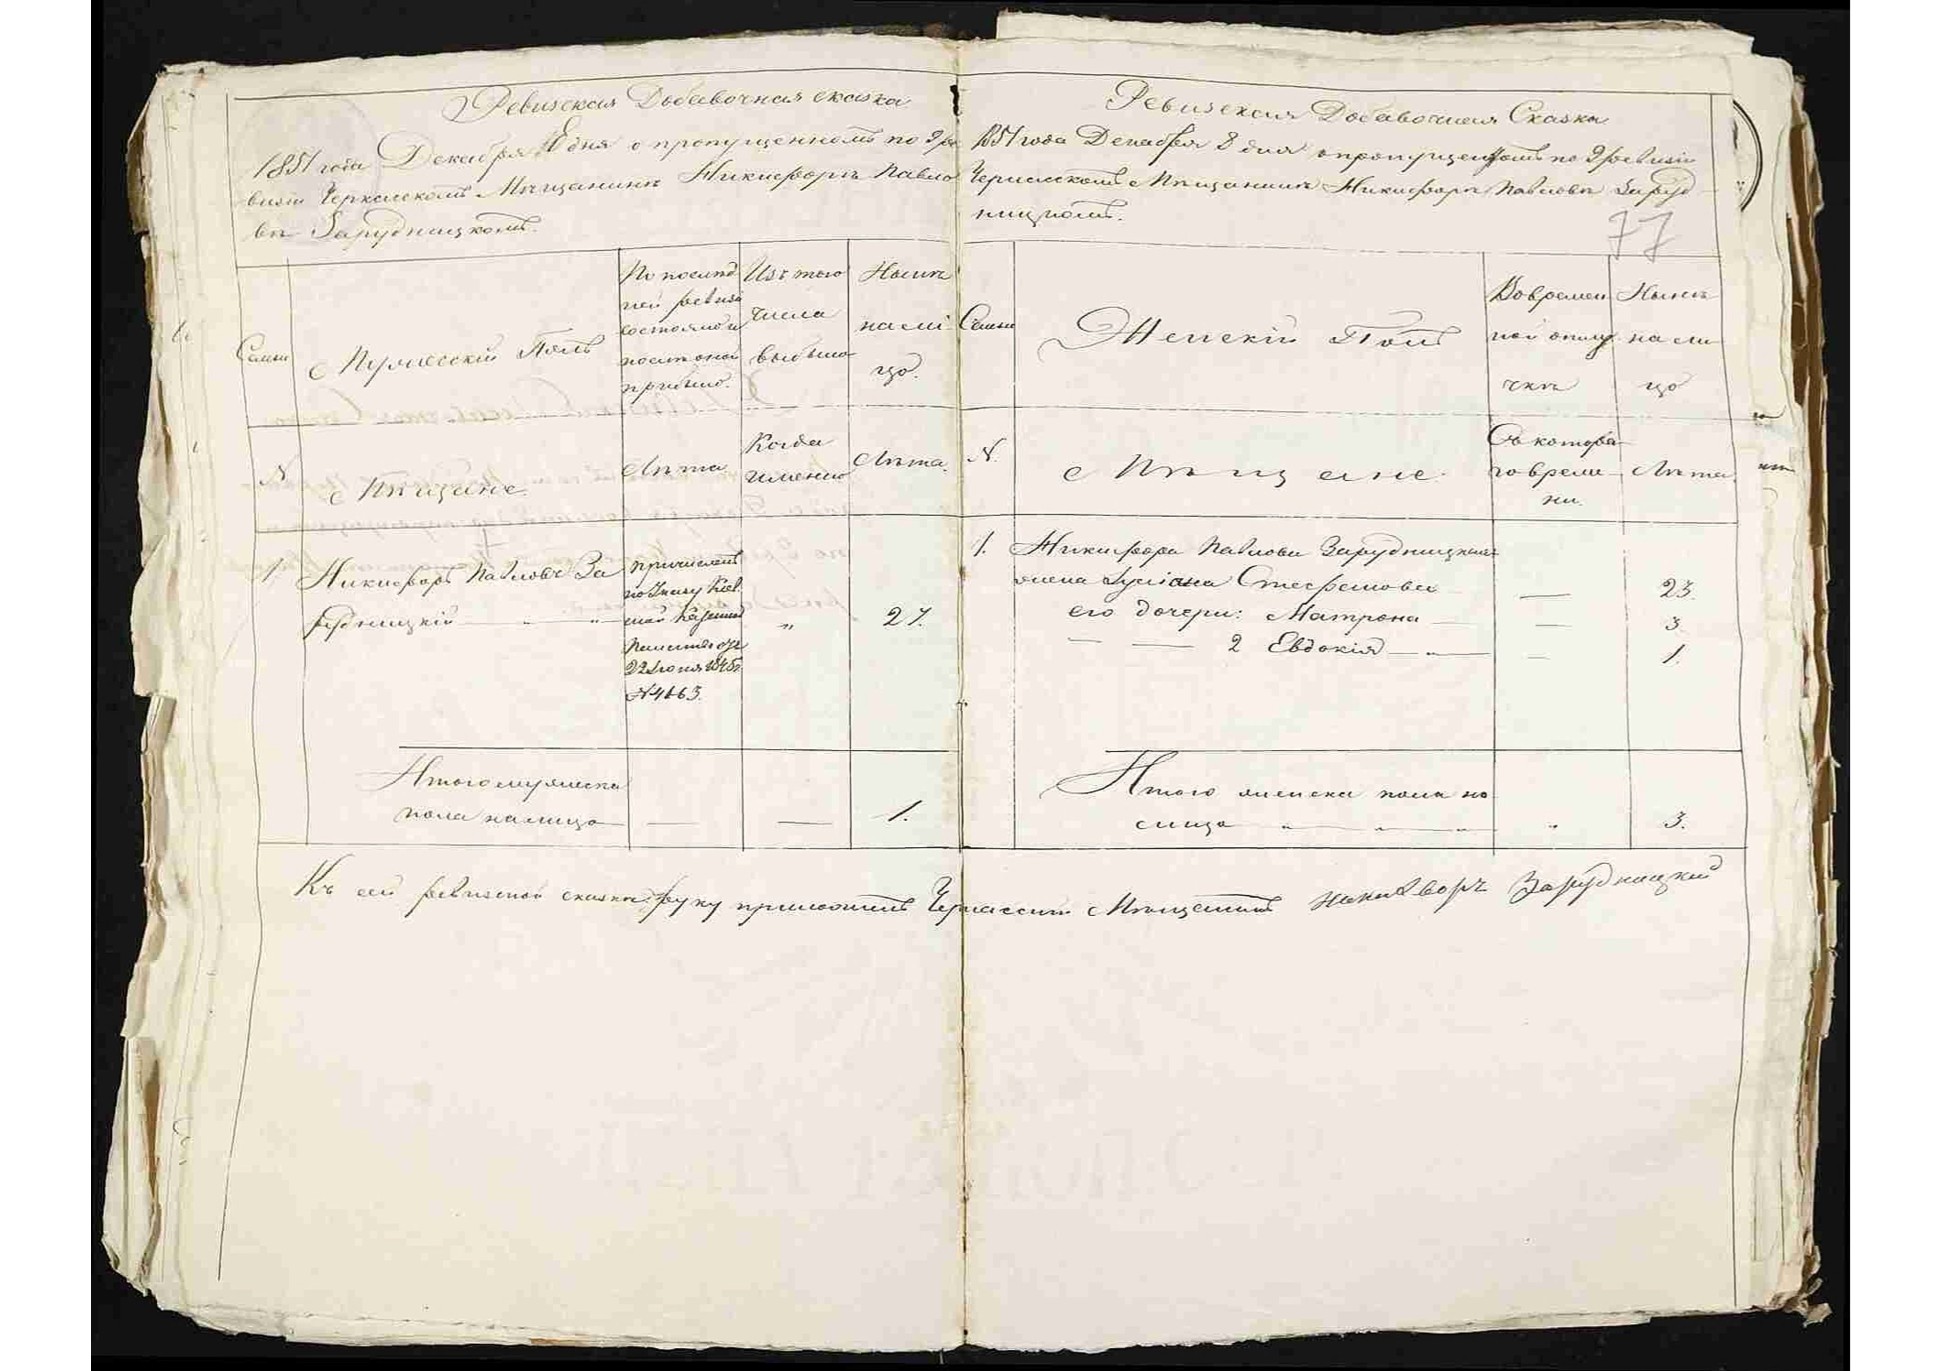 Ревизская Добавочная сказка
1851 года Декабря 8 дня о пропущенномъ по 9 ре
визіи Черкасскомъ Мѣщанинѣ Никифорѣ Павло
вѣ Зарудницкомъ.
Семьи
Мужескій Полъ
По послѣд
ней ревизіи
состояло и
послѣ оной
прибыло.
Изъ того
числа
выбыло
Нынѣ
на ли
цо.
№
Мѣщане
Лѣта
Когда
именно
Лѣта.
1. Никифоръ Павловъ За
рудницкій — „
причисленъ
по Указу Кіев.
ской Казенной
Палаты отъ
22 Іюня 1845 г.
№ 4663.
„
27.
Итого мужеска
пола на лицо — — 1.
Ревизская Добавочная Сказка
1851 года Декабря 8 дня о пропущенномъ по 9 ревизіи
Черкасскомъ Мѣщанинѣ Никифорѣ Павловѣ Заруд
ницкомъ.
77
Семьи
Женскій Полъ
Во времен
ной отлу
чкѣ
Нынѣ
на ли
цо
№
Мѣщане.
Съ котора
го време
ни.
Лѣта.
1. Никифора Павлова Зарудницкаго
жена Стефанова — 23.
его дочери: Матрона — — 3.
— — 2 Евдокія — „ — — 1.
Итого женска пола на
лицо „ „ „ „ 3.
Къ сей ревизской сказкѣ руку приложилъ Черкасскій Мѣщанинъ Никифоръ Зарудницкий